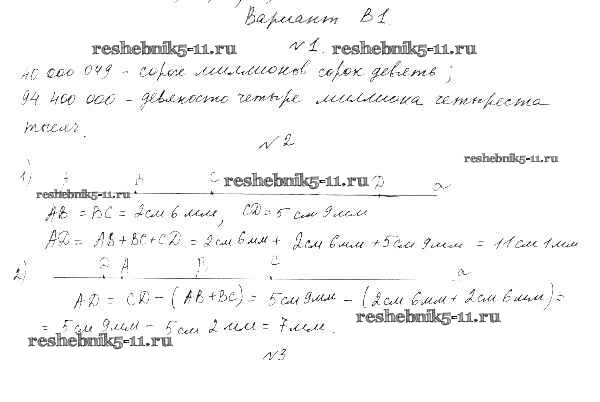 Вариант В1
reshebnik5-11.ru
№1.
reshebnik5-11.ru
40 000 049 - сорок миллионов сорок девять;
94 400 000 - девяносто четыре миллиона четыреста
тысяч.
№2
reshebnik5-11.ru
1) A B C D a
reshebnik5-11.ru
reshebnik5-11.ru
AB = BC = 2см 6мм, CD = 5см 9мм
AD = AB+BC+CD = 2см 6мм + 2см 6мм + 5см 9мм = 11см 1мм
2) D A B C a
AD = CD - (AB+BC) = 5см 9мм - (2см 6мм + 2см 6мм) =
= 5см 9мм - 5см 2мм = 7мм.
reshebnik5-11.ru
reshebnik5-11.ru
№3